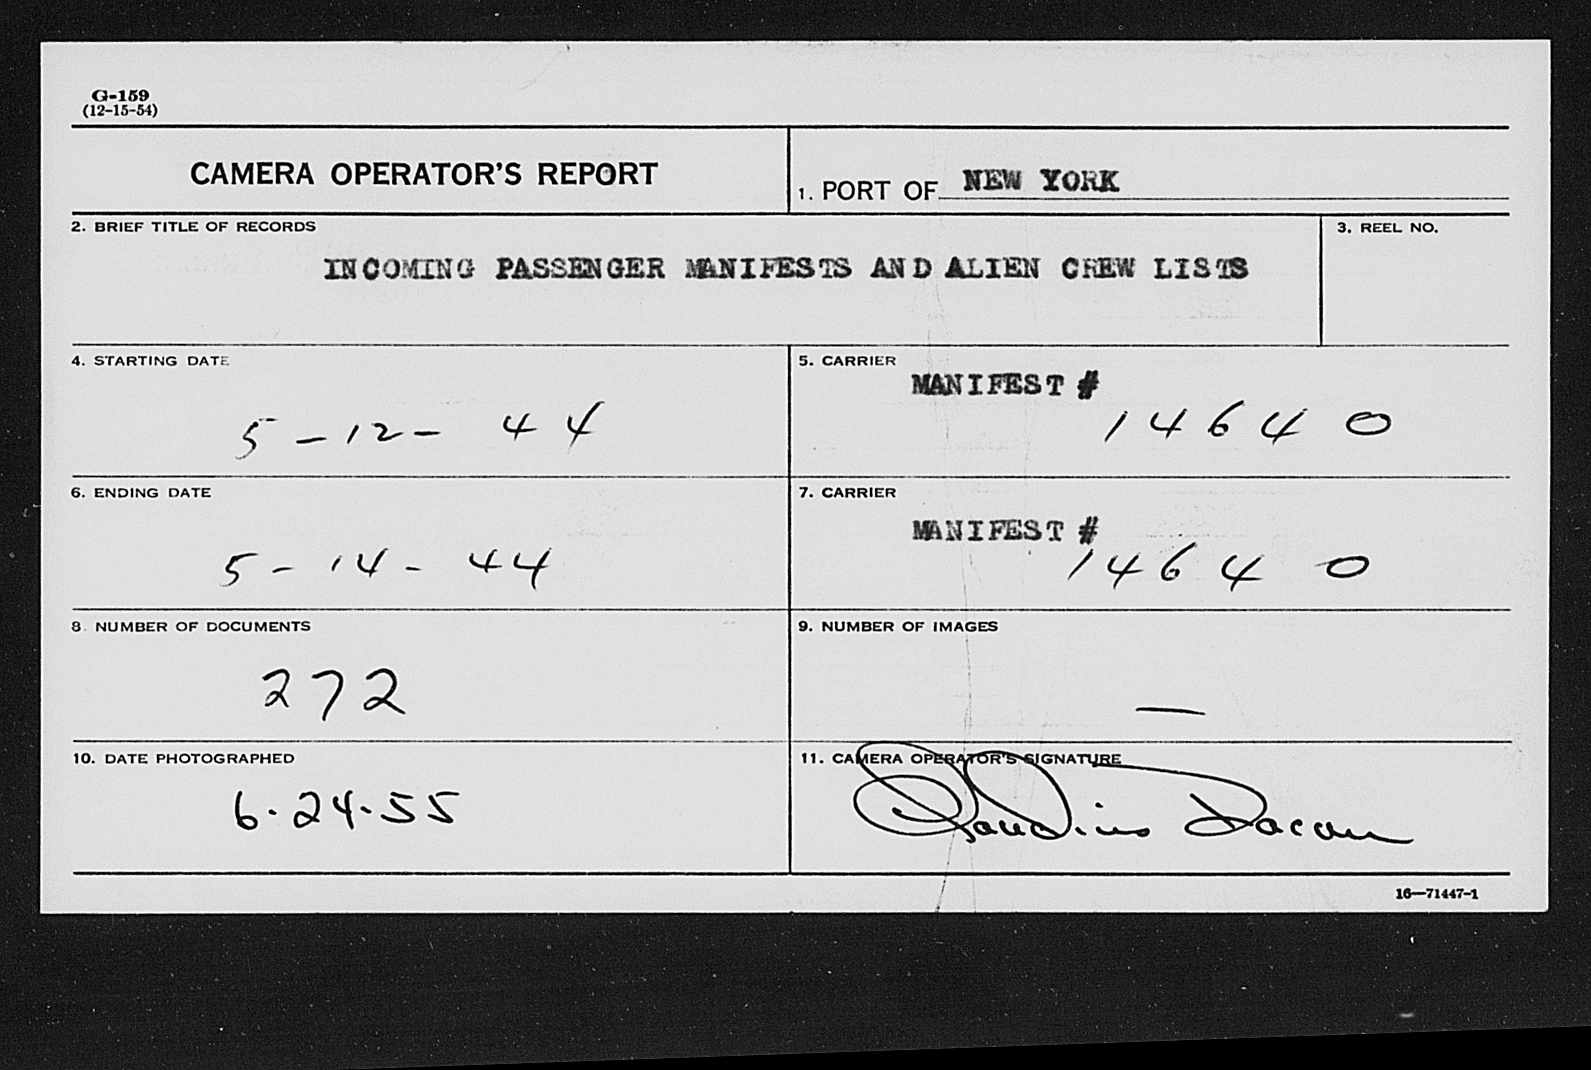 G-159
(12-15-54)
CAMERA OPERATOR'S REPORT
1. PORT OF NEW YORK
2. BRIEF TITLE OF RECORDS
3. REEL NO.
INCOMING PASSENGER MANIFESTS AND ALIEN CREW LISTS
4. STARTING DATE
5-12-44
5. CARRIER
MANIFEST #
14640
6. ENDING DATE
5-14-44
7. CARRIER
MANIFEST #
14640
8. NUMBER OF DOCUMENTS
272
9. NUMBER OF IMAGES
—
10. DATE PHOTOGRAPHED
6.24.55
11. CAMERA OPERATOR'S SIGNATURE
16—71447-1